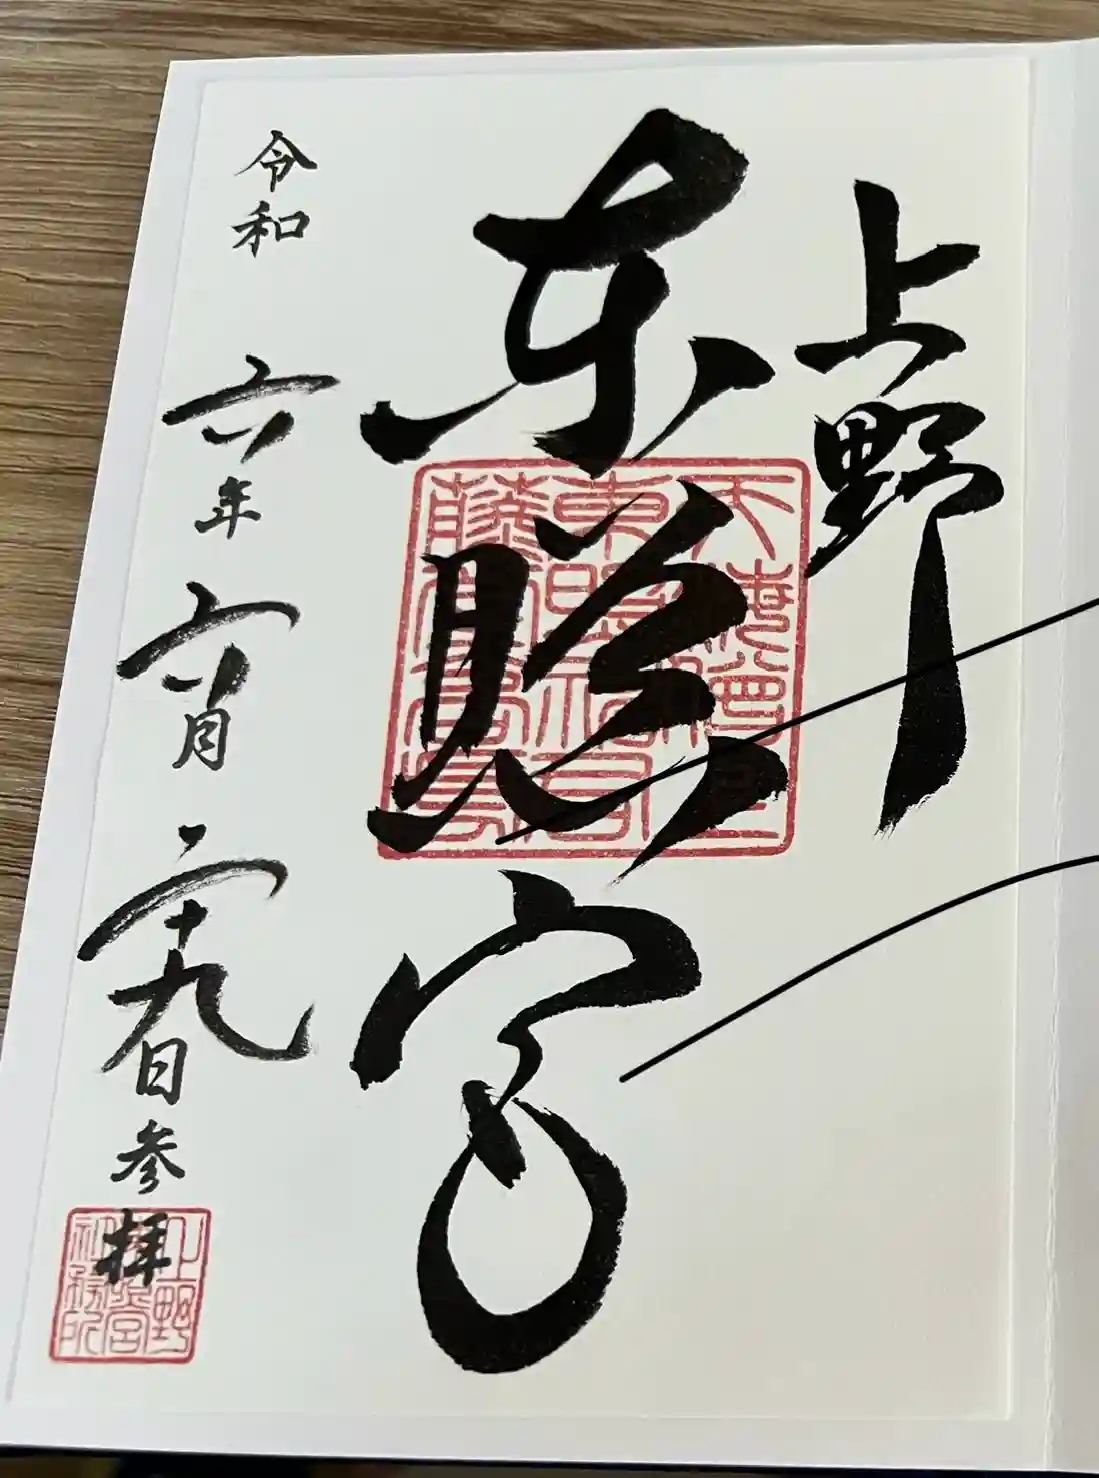 上野
東照宮
天海僧正
東照神君
藤堂高虎
令和六年六月二十九日参拝
上野
東照宮
社務所